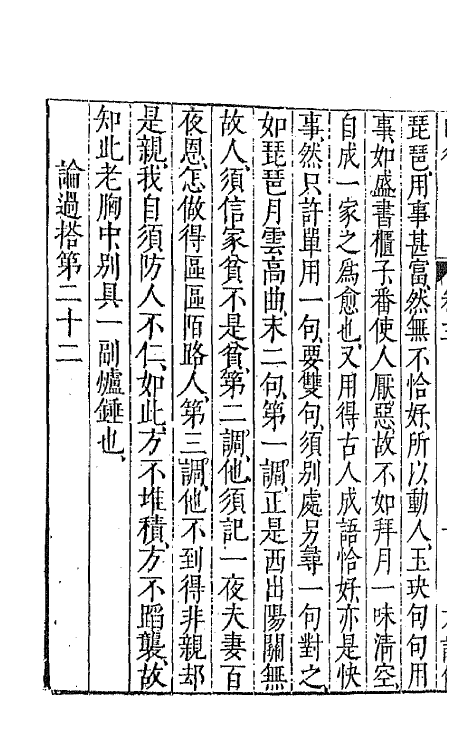 琵琶用事甚富然無不恰好所以動人玉玦句句用
事如盛書櫃子番使人厭惡故不如拜月一味清空
自成一家之為愈也又用得古人成語恰好亦是快
事然只許單用一句要雙句須別處另尋一句對之
如琵琶月雲高曲末二句第一調正是西出陽關無
故人須信家貧不是貧第二調他須記一夜夫妻百
夜恩怎做得區區陌路人第三調他不到得非親却
是親我自須防人不仁如此方不堆積方不蹈襲故
知此老胸中別具一副爐錘也
論過搭第二十二